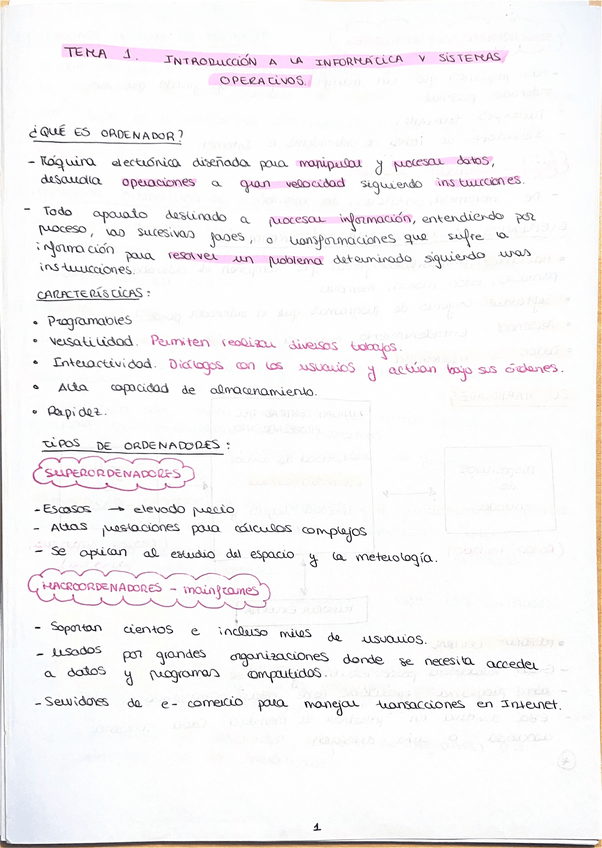 TEMA 1. INTRODUCCIÓN A LA INFORMÁCICA Y SISTEMAS
OPERATIVOS.
¿QUÉ ES ORDENADOR?
- Máquina electrónica diseñada para manipular y procesar datos,
desarrolla operaciones a gran velocidad siguiendo instrucciones.
- Todo aparato destinado a procesar información, entendiendo por
proceso, las sucesivas fases, o transformaciones que sufre la
información para resolver un problema determinado siguiendo unas
instrucciones.
CARACTERÍSTICAS:
• Programables
• Versatilidad. Permiten realizar diversos trabajos.
• Interactividad. Diálogos con los usuarios y actúan bajo sus órdenes.
• Alta capacidad de almacenamiento.
• Rapidez.
TIPOS DE ORDENADORES:
SUPERORDENADORES
- Escasos → elevado precio
- Altas prestaciones para cálculos complejos
- Se aplican al estudio del espacio y la meterología.
MACROORDENADORES - mainframes
- Soportan cientos e incluso miles de usuarios.
- Usados por grandes organizaciones donde se necesita acceder
a datos y programas compartidos.
- Servidores de e-comercio para manejar transacciones en Internet.
1